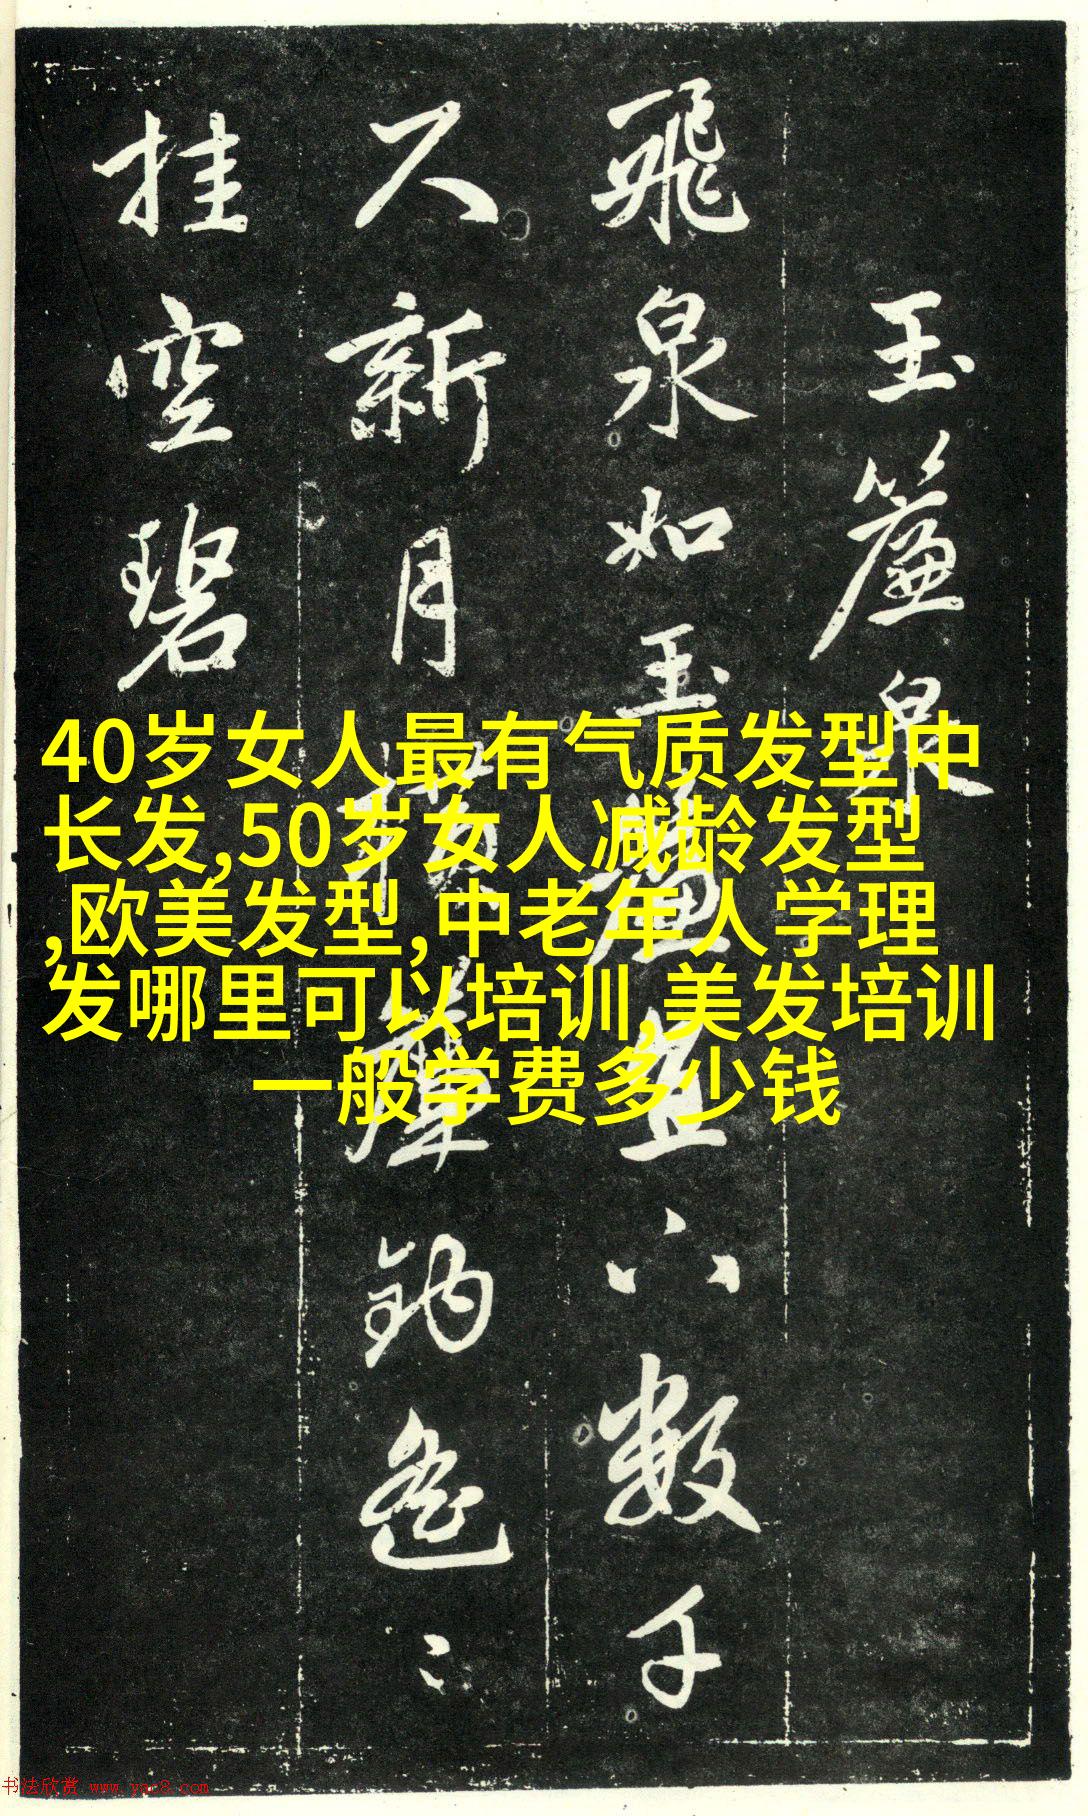 玉簾泉
飛泉如玉簾直下數千
尺新月橫簾鈎遙〻
挂空碧
40岁女人最有气质发型中
长发,50岁女人减龄发型
,欧美发型,中老年人学理
发哪里可以培训,美发培训
一般学费多少钱
书法欣赏 www.yac8.com